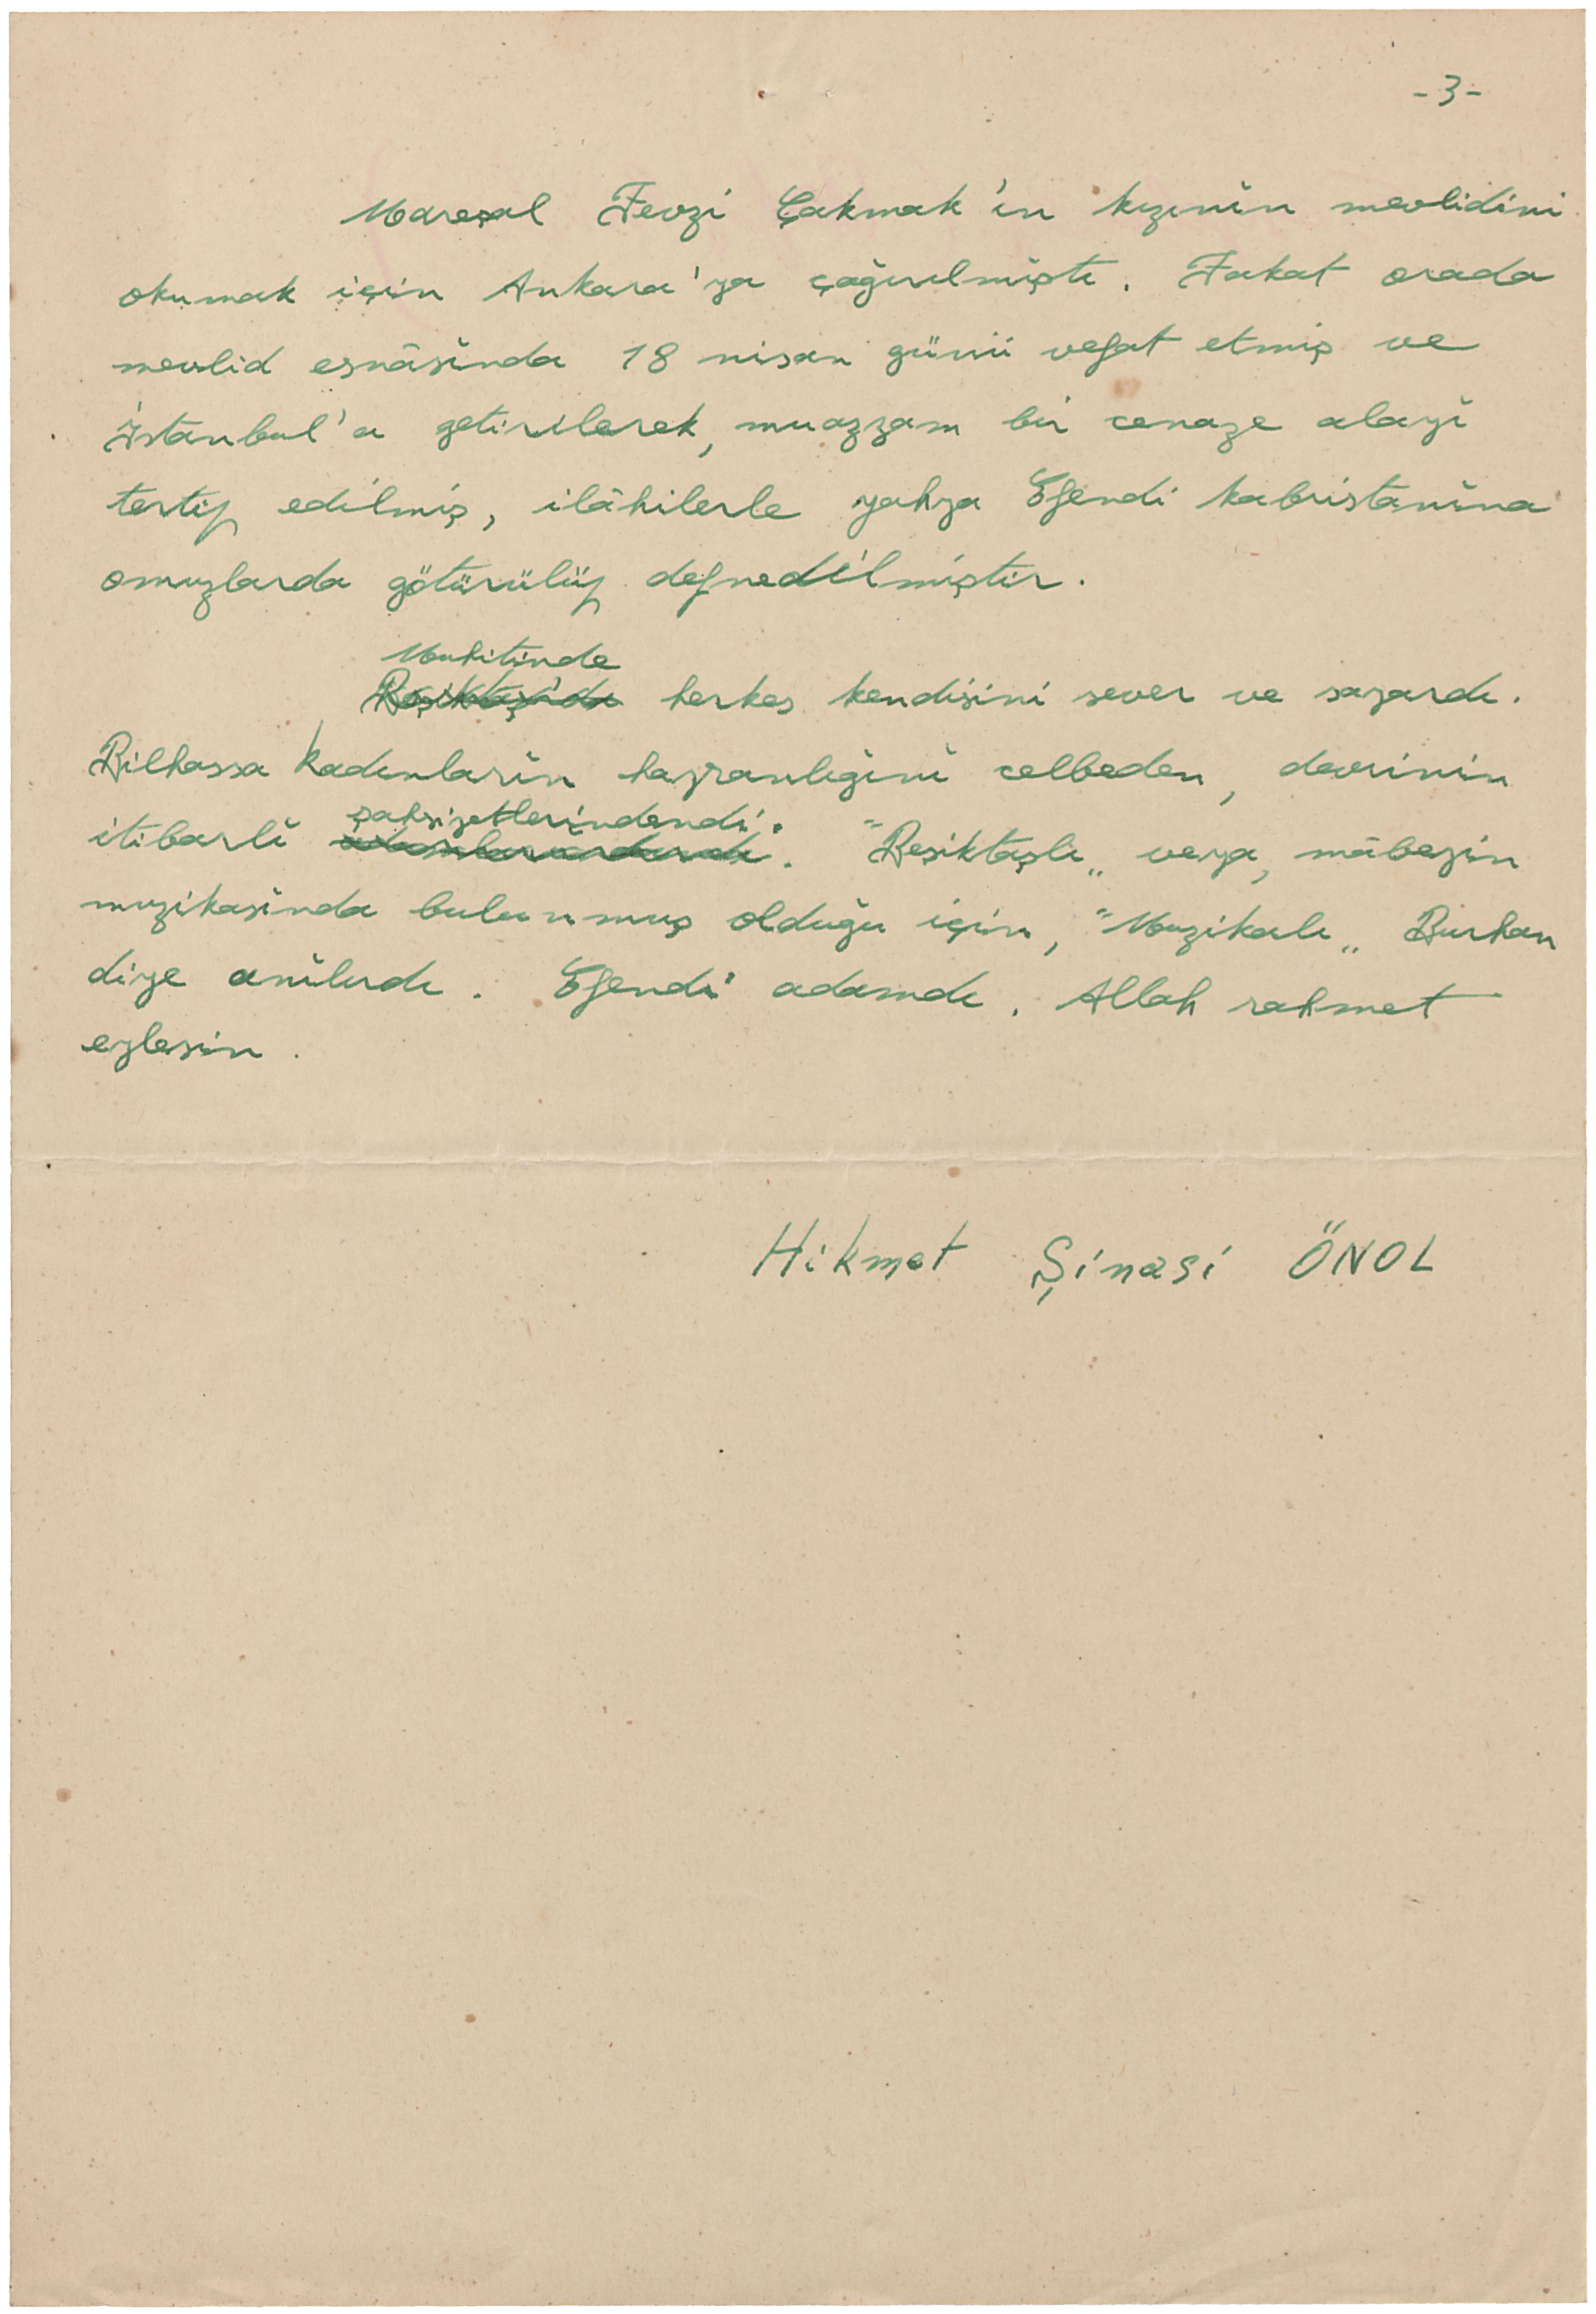 -3-
Mareşal Fevzi Çakmak'ın kızının mevlidini
okumak için Ankara'ya çağırılmıştı. Fakat orada
mevlid esnâsında 18 nisan günü vefat etmiş ve
İstanbul'a getirilerek, muazzam bir cenaze alayı
tertip edilmiş, ilâhilerle yahya Efendi kabristanına
omuzlarda götürülüp defnedilmiştir.
Muhitinde
Beşiktaş'da herkes kendisini sever ve sayardı.
Bilhassa kadınların hayranlığını celbeden, devrinin
şahsiyetlerindendi.
itibarlı adamlarındandı. "Beşiktaşlı„ veya, mâbeyin
muzikasında bulunmuş olduğu için, "Muzikalı„ Burhan
diye anılırdı. Efendi adamdı. Allah rahmet
eylesin.
Hikmet Şinasi ÖNOL